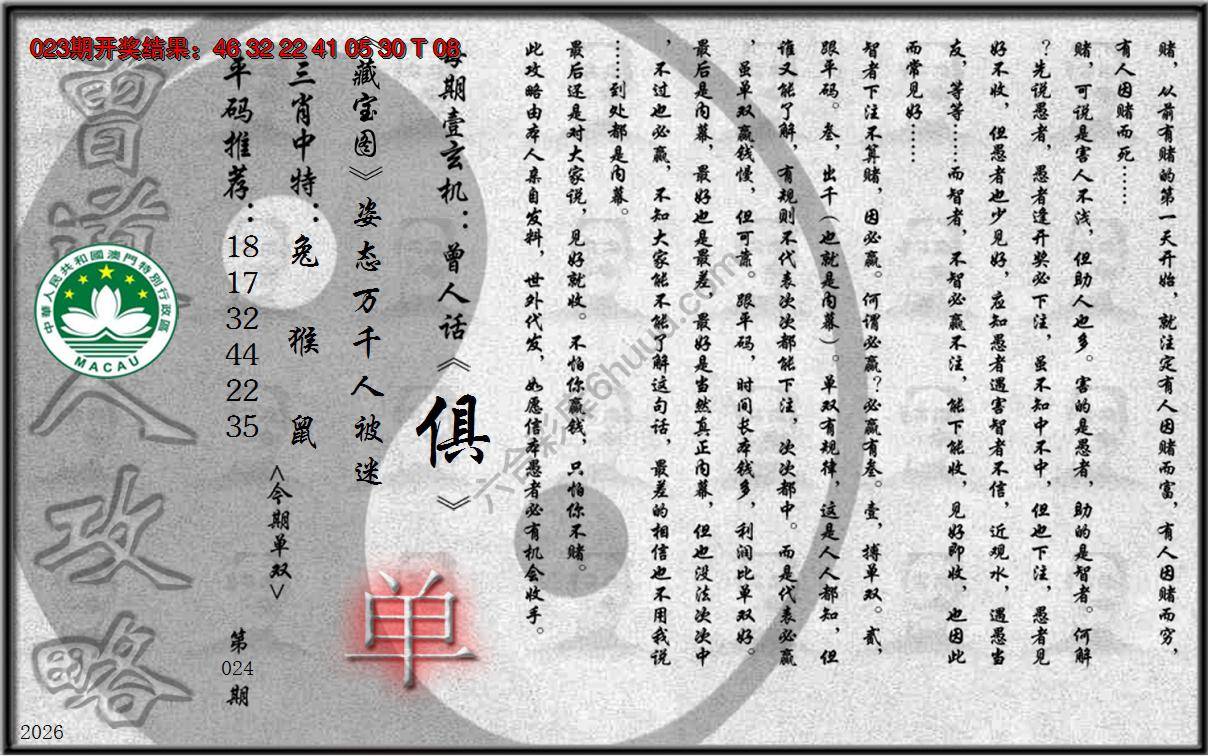 023期开奖结果：46 32 22 41 05 30 T 08
赌，从前有赌的第一天开始，就注定有人因赌而富，有人因赌而穷，
有人因赌而死……
赌，可说是害人不浅，但助人也多。害的是愚者，助的是智者。何解
？先说愚者，愚者逢开奖必下注，虽不知中不中，但也下注，愚者见
好不收，但愚者也少见好，应知愚者遇害智者不信，近观水，遇愚当
友，等等……而智者，不智必赢不注，能下能收，见好即收，也因此
而常见好……
智者下注不算赌，因必赢。何谓必赢？必赢有叁。壹，搏单双。贰，
跟平码。叁，出千（也就是内幕）。单双有规律，这是人人都知，但
谁又能了解，有规则不代表次次都能下注，次次都中。而是代表必赢
，虽单双赢钱慢，但可靠。跟平码，时间长本钱多，利润比单双好。
最后是内幕，最好也是最差，最好是当然真正内幕，但也没法次次中
，不过也必赢，不知大家能不能了解这句话，最差的相信也不用我说
……到处都是内幕。
最后还是对大家说，见好就收。不怕你赢钱，只怕你不赌。
此攻略由本人亲自发料，世外代发，如愿信本愚者必有机会收手。
每期壹玄机：曾人话《俱》
《藏宝图》姿态万千人被迷
三肖中特：兔 猴 鼠
<今期单双>
单
平码推荐：18 17 32 44 22 35
第024期
曾道人攻略
中華人民共和國澳門特別行政區
MACAU
六合彩库6huuu.com
2026